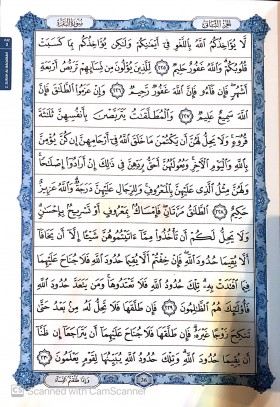 الجزء الثاني
سورة البقرة
لَّا يُؤَاخِذُكُمُ ٱللَّهُ بِٱللَّغْوِ فِىٓ أَيْمَـٰنِكُمْ وَلَـٰكِن يُؤَاخِذُكُم بِمَا كَسَبَتْ
قُلُوبُكُمْ وَٱللَّهُ غَفُورٌ حَلِيمٌ ٢٢٥ لِّلَّذِينَ يُؤْلُونَ مِن نِّسَآئِهِمْ تَرَبُّصُ أَرْبَعَةِ
أَشْهُرٍ فَإِن فَآءُو فَإِنَّ ٱللَّهَ غَفُورٌ رَّحِيمٌ ٢٢٦ وَإِنْ عَزَمُوا۟ ٱلطَّلَـٰقَ فَإِنَّ
ٱللَّهَ سَمِيعٌ عَلِيمٌ ٢٢٧ وَٱلْمُطَلَّقَـٰتُ يَتَرَبَّصْنَ بِأَنفُسِهِنَّ ثَلَـٰثَةَ
قُرُوٓءٍ وَلَا يَحِلُّ لَهُنَّ أَن يَكْتُمْنَ مَا خَلَقَ ٱللَّهُ فِىٓ أَرْحَامِهِنَّ إِن كُنَّ يُؤْمِنَّ
بِٱللَّهِ وَٱلْيَوْمِ ٱلْـَٔاخِرِ وَبُعُولَتُهُنَّ أَحَقُّ بِرَدِّهِنَّ فِى ذَٰلِكَ إِنْ أَرَادُوٓا۟ إِصْلَـٰحًا
وَلَهُنَّ مِثْلُ ٱلَّذِى عَلَيْهِنَّ بِٱلْمَعْرُوفِ وَلِلرِّجَالِ عَلَيْهِنَّ دَرَجَةٌ وَٱللَّهُ عَزِيزٌ
حَكِيمٌ ٢٢٨ ٱلطَّلَـٰقُ مَرَّتَانِ فَإِمْسَاكٌۢ بِمَعْرُوفٍ أَوْ تَسْرِيحٌۢ بِإِحْسَـٰنٍ
وَلَا يَحِلُّ لَكُمْ أَن تَأْخُذُوا۟ مِمَّآ ءَاتَيْتُمُوهُنَّ شَيْـًٔا إِلَّآ أَن يَخَافَآ
أَلَّا يُقِيمَا حُدُودَ ٱللَّهِ فَإِنْ خِفْتُمْ أَلَّا يُقِيمَا حُدُودَ ٱللَّهِ فَلَا جُنَاحَ عَلَيْهِمَا
فِيمَا ٱفْتَدَتْ بِهِۦ تِلْكَ حُدُودُ ٱللَّهِ فَلَا تَعْتَدُوهَا وَمَن يَتَعَدَّ حُدُودَ ٱللَّهِ
فَأُو۟لَـٰٓئِكَ هُمُ ٱلظَّـٰلِمُونَ ٢٢٩ فَإِن طَلَّقَهَا فَلَا تَحِلُّ لَهُۥ مِنۢ بَعْدُ حَتَّىٰ
تَنكِحَ زَوْجًا غَيْرَهُۥ فَإِن طَلَّقَهَا فَلَا جُنَاحَ عَلَيْهِمَآ أَن يَتَرَاجَعَآ إِن ظَنَّآ
أَن يُقِيمَا حُدُودَ ٱللَّهِ وَتِلْكَ حُدُودُ ٱللَّهِ يُبَيِّنُهَا لِقَوْمٍ يَعْلَمُونَ ٢٣٠
36
CS Scanned with CamScanner